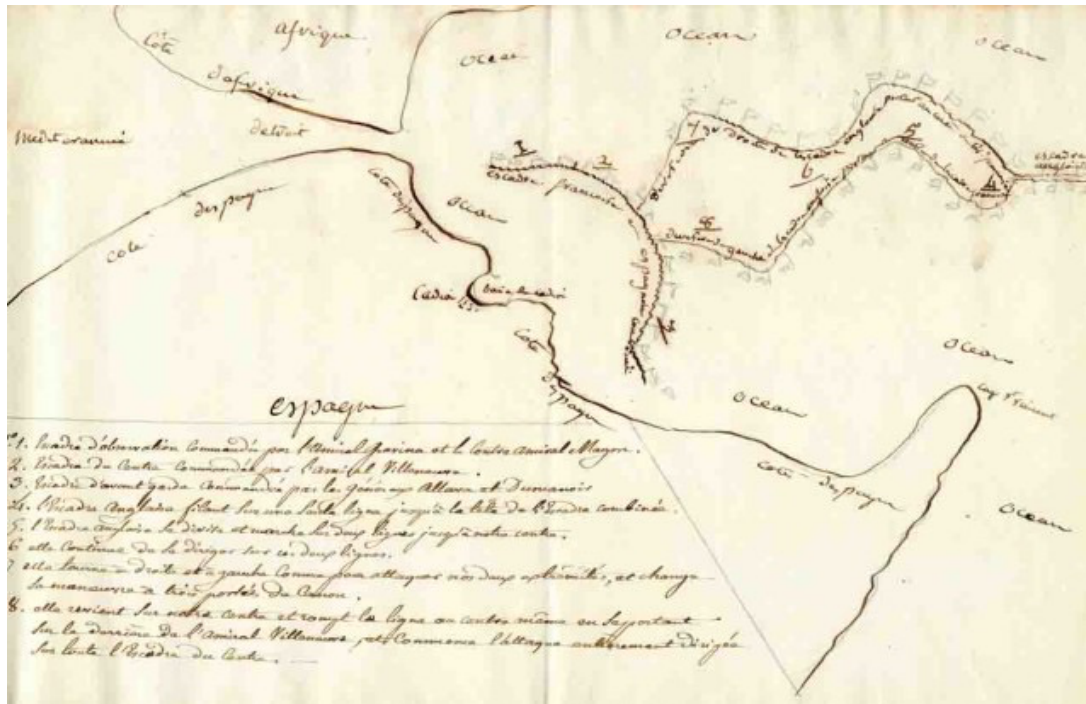 afrique
Ocean
Ocean
Ocean
Coté
d'afrique
detroit
Mediteranneé
coté despagne
Cote despagne
Ocean
1
2
escadre francaise
3
7
6
5
4
8
escadre anglaise
Cadix
Baie de cadix
Cote despagne
Ocean
Ocean
Cap St Vincent
Cote despagne
Ocean
espagne
1. Escadre d'observation commandé par l'Amiral Gravina et le Contre amiral Magon.
2. Escadre du Centre Commandée par l'amiral Villeneuve.
3. Escadre d'avant garde commandée par les généraux Allava et Dumanoir
4. l'Escadre Anglaise filant sur une seule ligne jusqu'à la tête de l'Escadre combinée.
5. l'Escadre anglaise se divise et marche sur deux lignes jusqu'à notre centre.
6 elle Continue de se diriger sur ces deux lignes.
7 elle tourne à droite et à gauche comme pour attaquer nos deux extrémités, et change
sa manœuvre à trois portés de Canon.
8. elle revient sur notre centre et rompt la ligne au centre même en se portant
sur le derrière de l'Amiral Villeneuve, et Commence l'attaque entierement dirigée
sur toute l'Escadre du Centre.